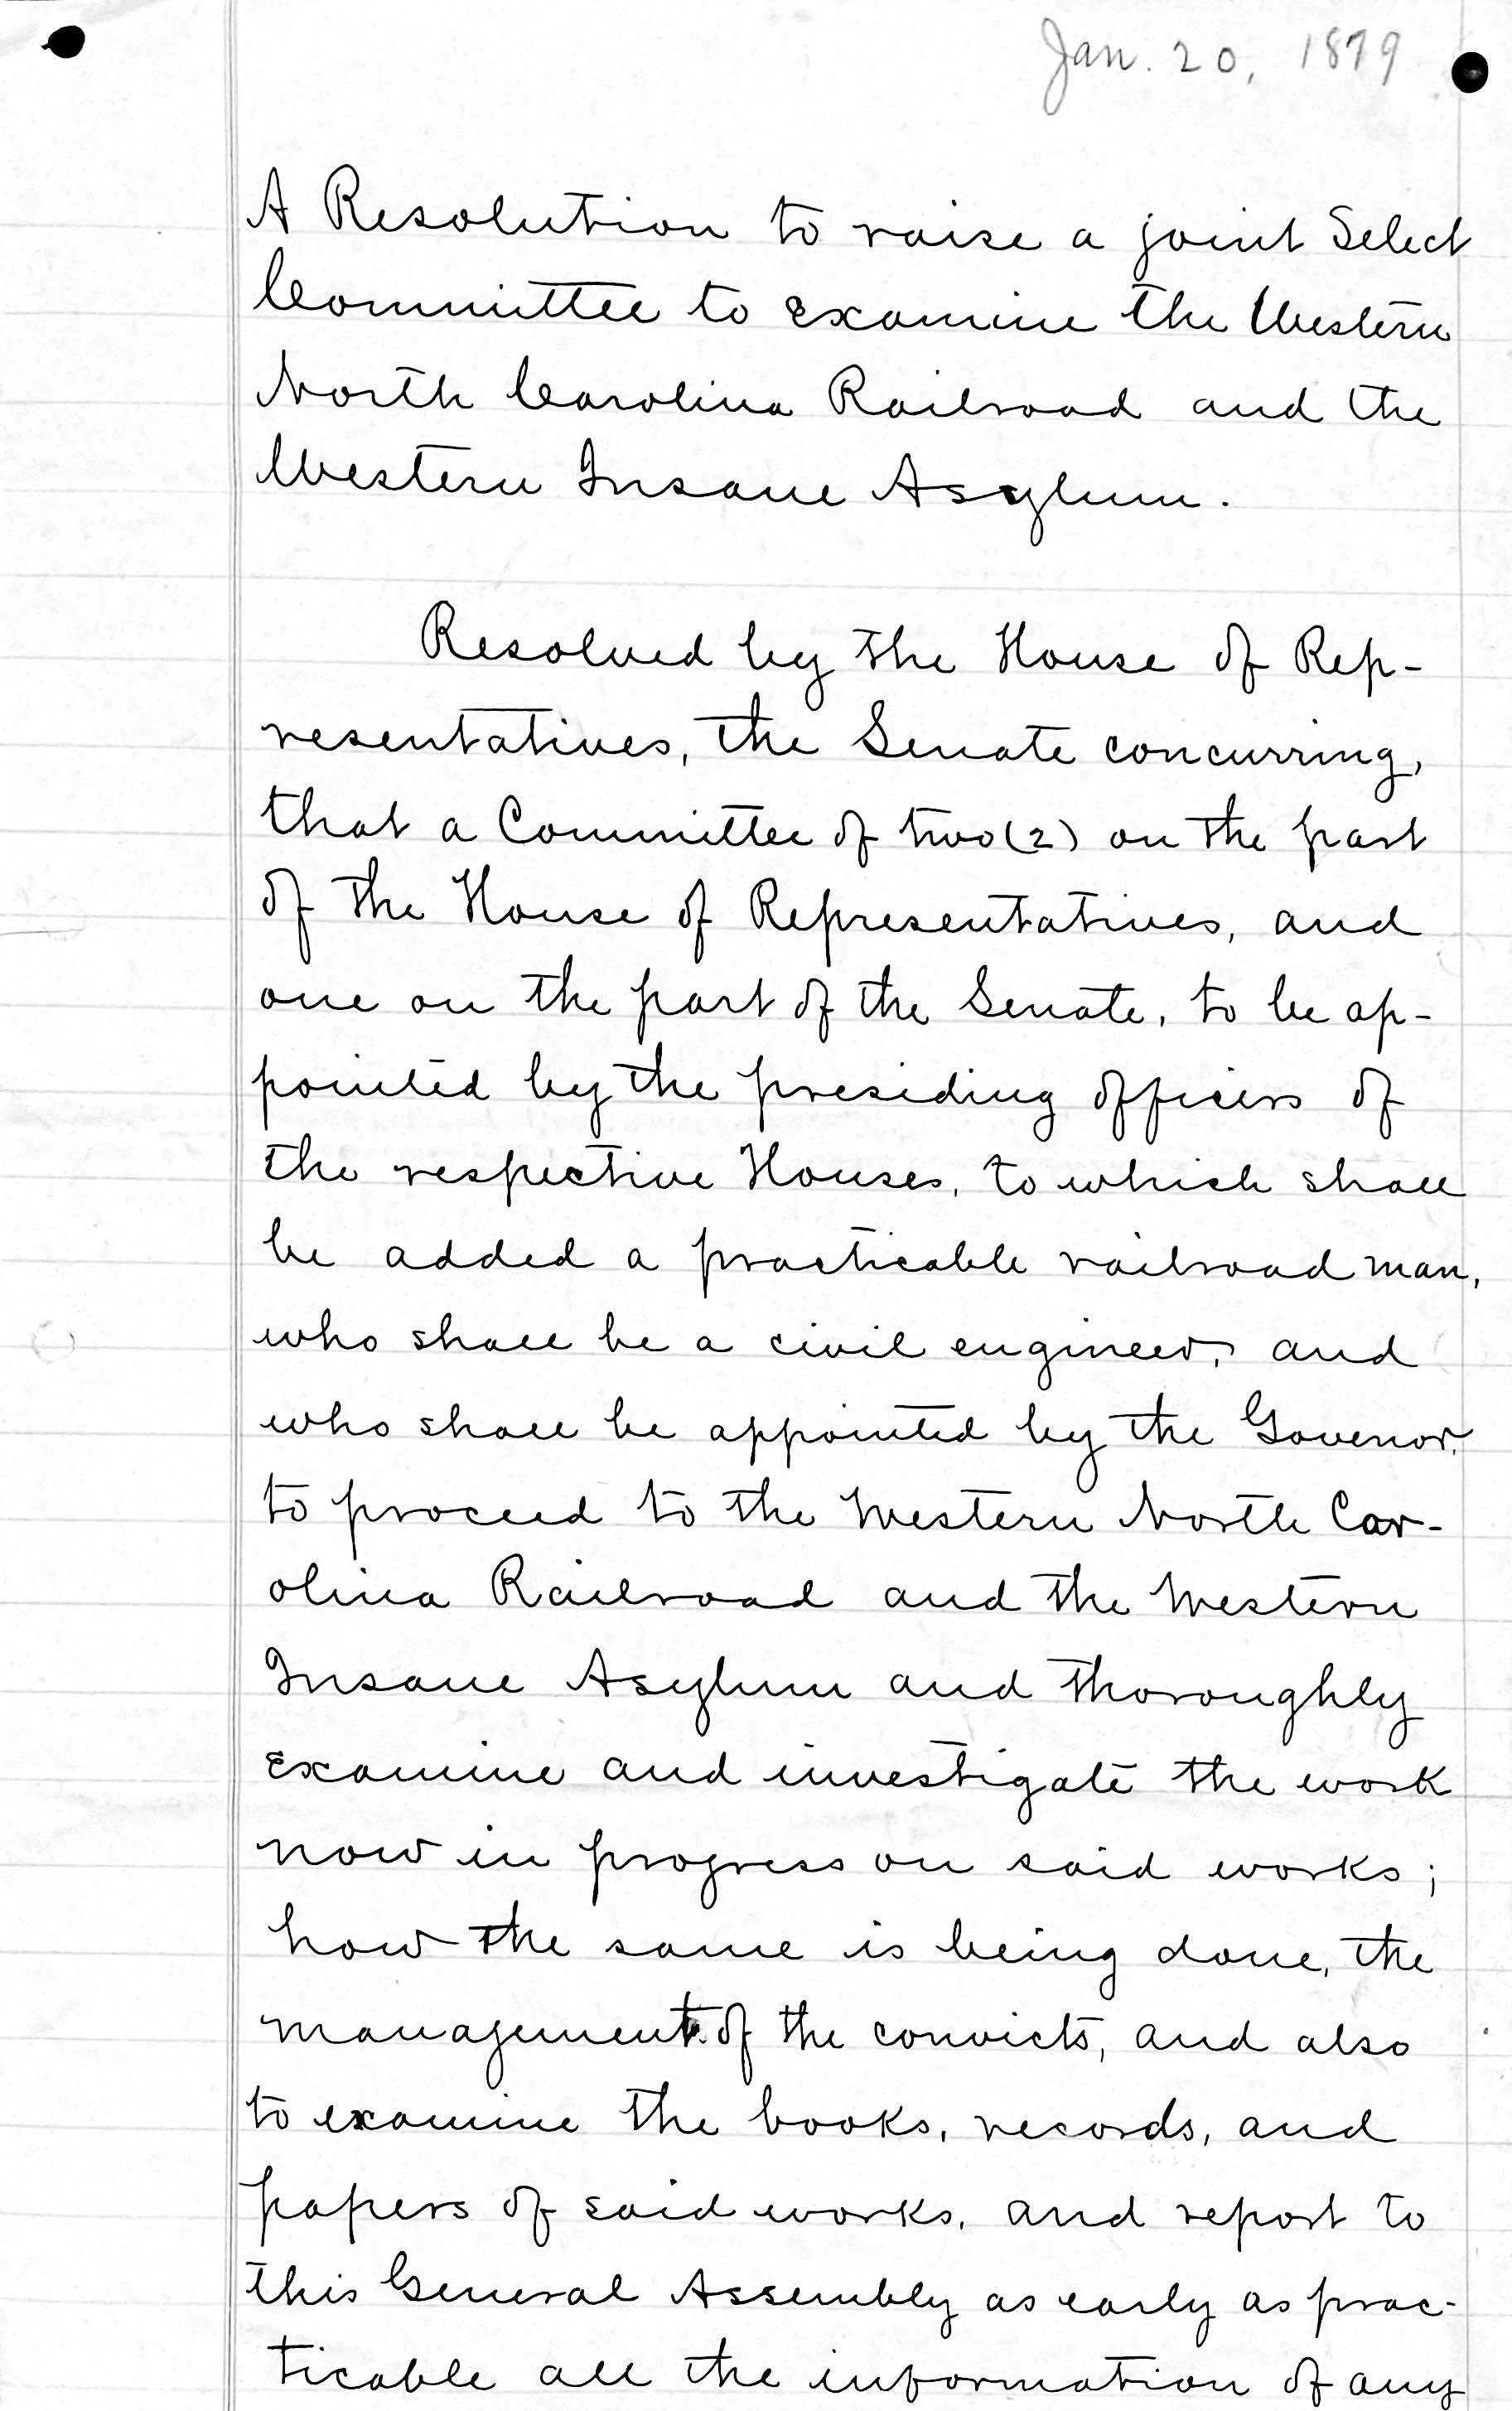 Jan. 20, 1879
A Resolution to raise a joint Select
Committee to examine the Western
North Carolina Railroad and the
Western Insane Asylum.
Resolved by the House of Rep-
resentatives, the Senate concurring,
that a Committee of two (2) on the part
of the House of Representatives, and
one on the part of the Senate, to be ap-
pointed by the presiding officers of
the respective Houses, to which shall
be added a practicable railroad man,
who shall be a civil engineer, and
who shall be appointed by the Govenor,
to proceed to the Western North Car-
olina Railroad and the Western
Insane Asylum and thoroughly
examine and investigate the work
now in progress on said works;
how the same is being done, the
management of the convicts, and also
to examine the books, records, and
papers of said works, and report to
this General Assembly as early as prac-
ticable all the information of any